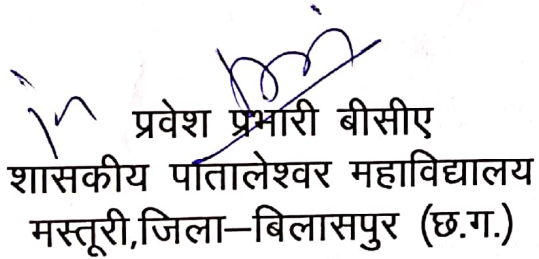 प्रवेश प्रभारी बीसीए
शासकीय पातालेश्वर महाविद्यालय
मस्तूरी,जिला–बिलासपुर (छ.ग.)